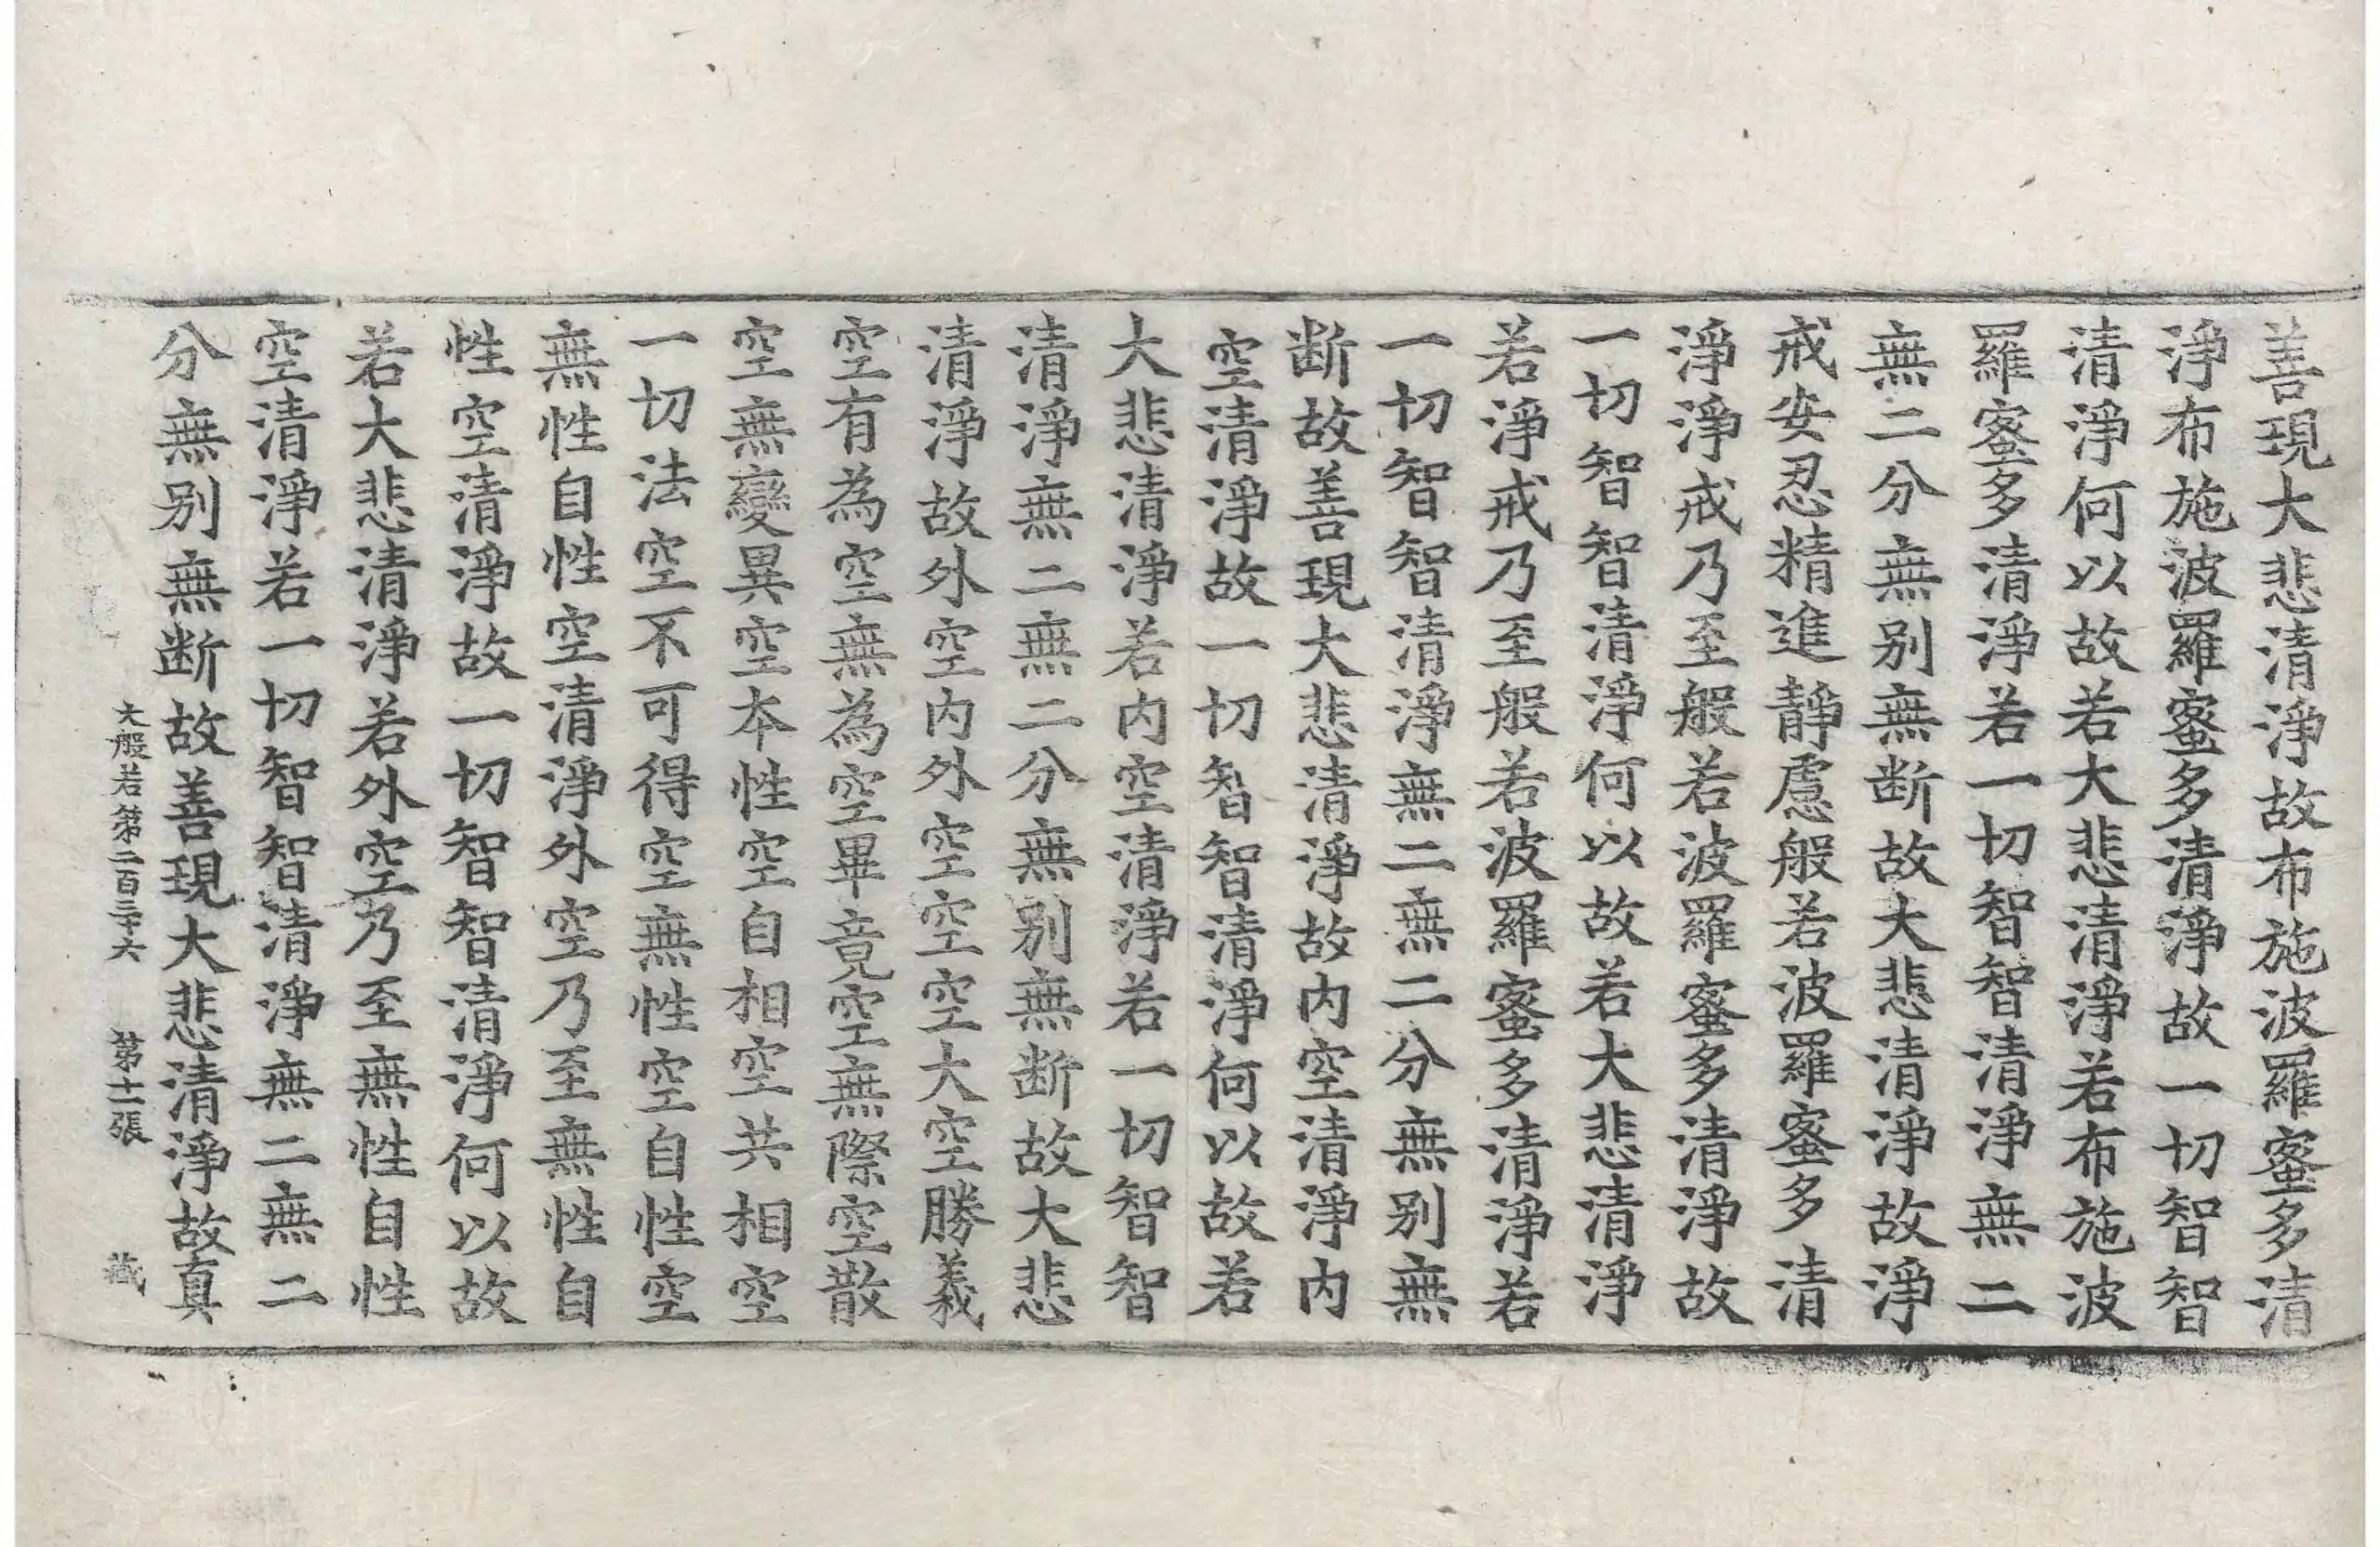 善現大悲清淨故布施波羅蜜多清
淨布施波羅蜜多清淨故一切智智
清淨何以故若大悲清淨若布施波
羅蜜多清淨若一切智智清淨無二
無二分無别無断故大悲清淨故淨
戒安忍精進靜慮般若波羅蜜多清
淨淨戒乃至般若波羅蜜多清淨故
一切智智清淨何以故若大悲清淨
若淨戒乃至般若波羅蜜多清淨若
一切智智清淨無二無二分無别無
断故善現大悲清淨故内空清淨内
空清淨故一切智智清淨何以故若
大悲清淨若内空清淨若一切智智
清淨無二無二分無别無断故大悲
清淨故外空内外空空空大空勝義
空有為空無為空畢竟空無際空散
空無變異空本性空自相空共相空
一切法空不可得空無性空自性空
無性自性空清淨外空乃至無性自
性空清淨故一切智智清淨何以故
若大悲清淨若外空乃至無性自性
空清淨若一切智智清淨無二無二
分無别無断故善現大悲清淨故真
大般若第二百三十六 第十二張 藏